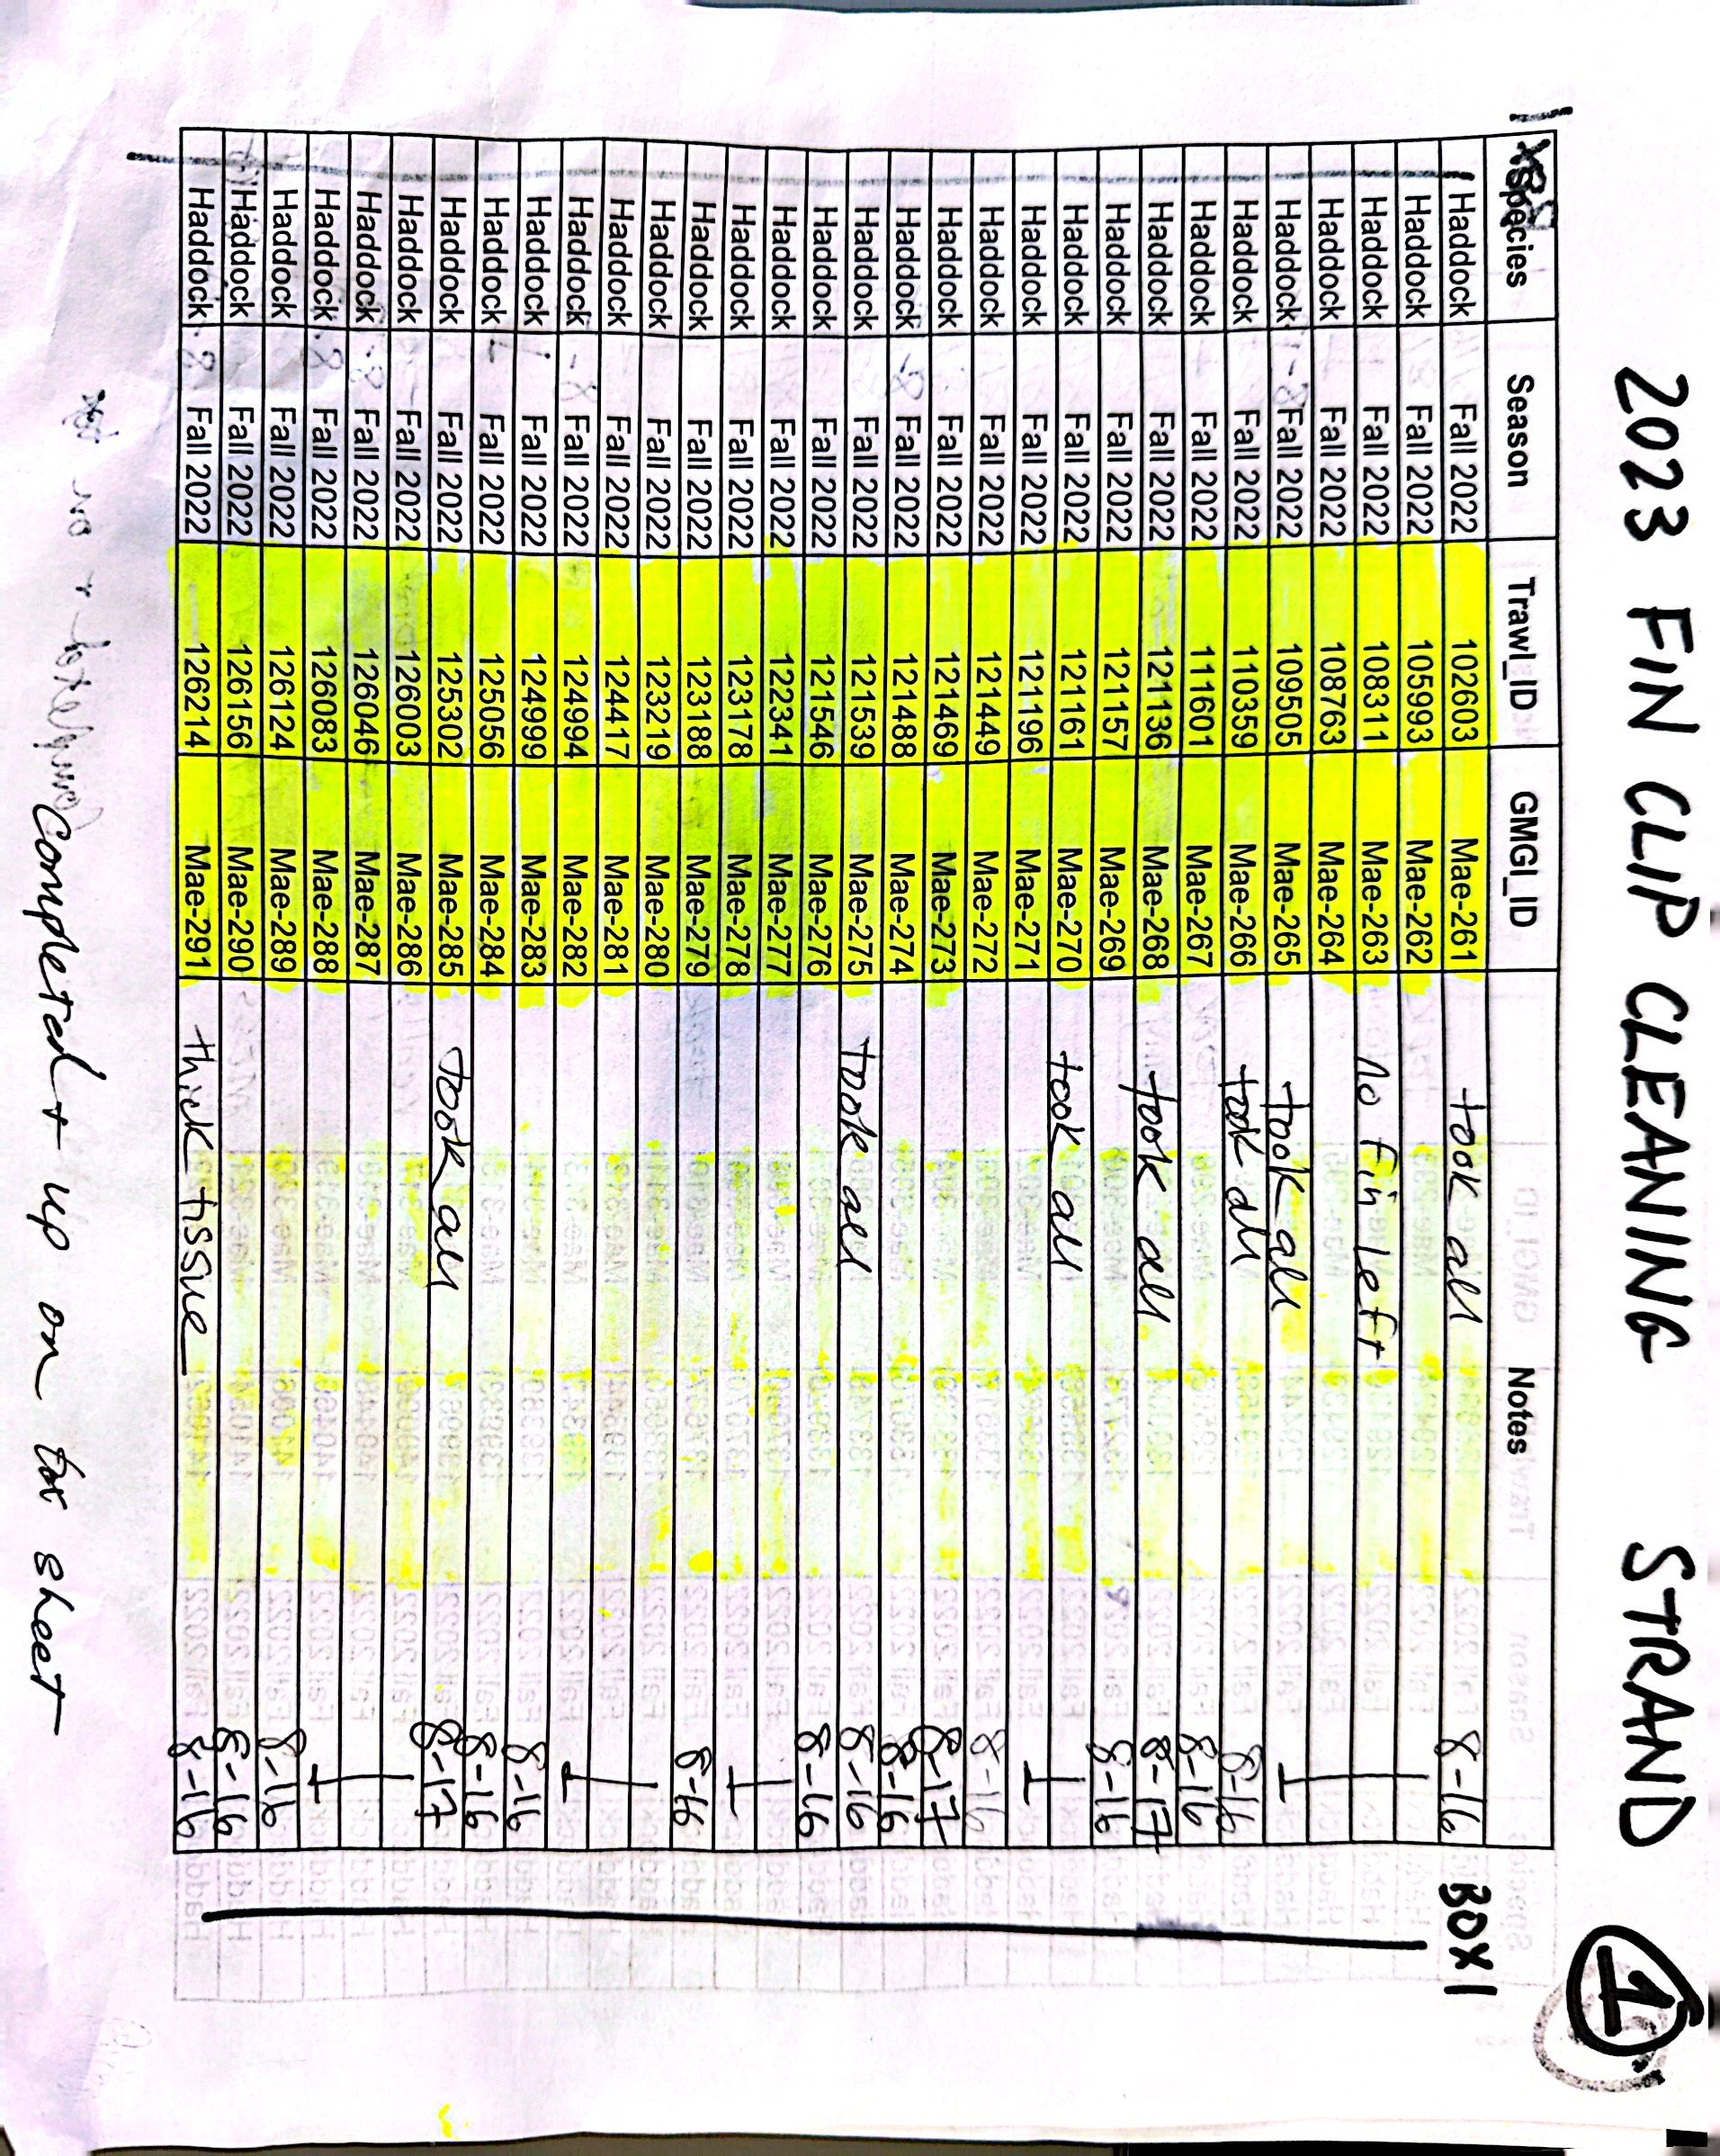 2023 FIN CLIP CLEANING STRAND 1
BOX 1
Species Season Trawl_ID GMGI_ID Notes
Haddock Fall 2022 102603 Mae-261 took all 8-16
Haddock Fall 2022 105993 Mae-262
Haddock Fall 2022 108311 Mae-263 no fin left
Haddock Fall 2022 108763 Mae-264
Haddock Fall 2022 109505 Mae-265 took all
Haddock Fall 2022 110359 Mae-266 took all 8-16
Haddock Fall 2022 111601 Mae-267 8-16
Haddock Fall 2022 121136 Mae-268 took all 8-17
Haddock Fall 2022 121157 Mae-269 8-16
Haddock Fall 2022 121161 Mae-270 took all
Haddock Fall 2022 121196 Mae-271
Haddock Fall 2022 121449 Mae-272 8-16
Haddock Fall 2022 121469 Mae-273 8-17
Haddock Fall 2022 121488 Mae-274 8-16
Haddock Fall 2022 121539 Mae-275 took all 8-16
Haddock Fall 2022 121546 Mae-276 8-16
Haddock Fall 2022 122341 Mae-277
Haddock Fall 2022 123178 Mae-278
Haddock Fall 2022 123188 Mae-279 8-16
Haddock Fall 2022 123219 Mae-280
Haddock Fall 2022 124417 Mae-281
Haddock Fall 2022 124994 Mae-282
Haddock Fall 2022 124999 Mae-283 8-16
Haddock Fall 2022 125056 Mae-284 8-16
Haddock Fall 2022 125302 Mae-285 took all 8-17
Haddock Fall 2022 126003 Mae-286
Haddock Fall 2022 126046 Mae-287
Haddock Fall 2022 126083 Mae-288
Haddock Fall 2022 126124 Mae-289 8-16
Haddock Fall 2022 126156 Mae-290 8-16
Haddock Fall 2022 126214 Mae-291 thick tissue 8-16
Completed + up on tox sheet